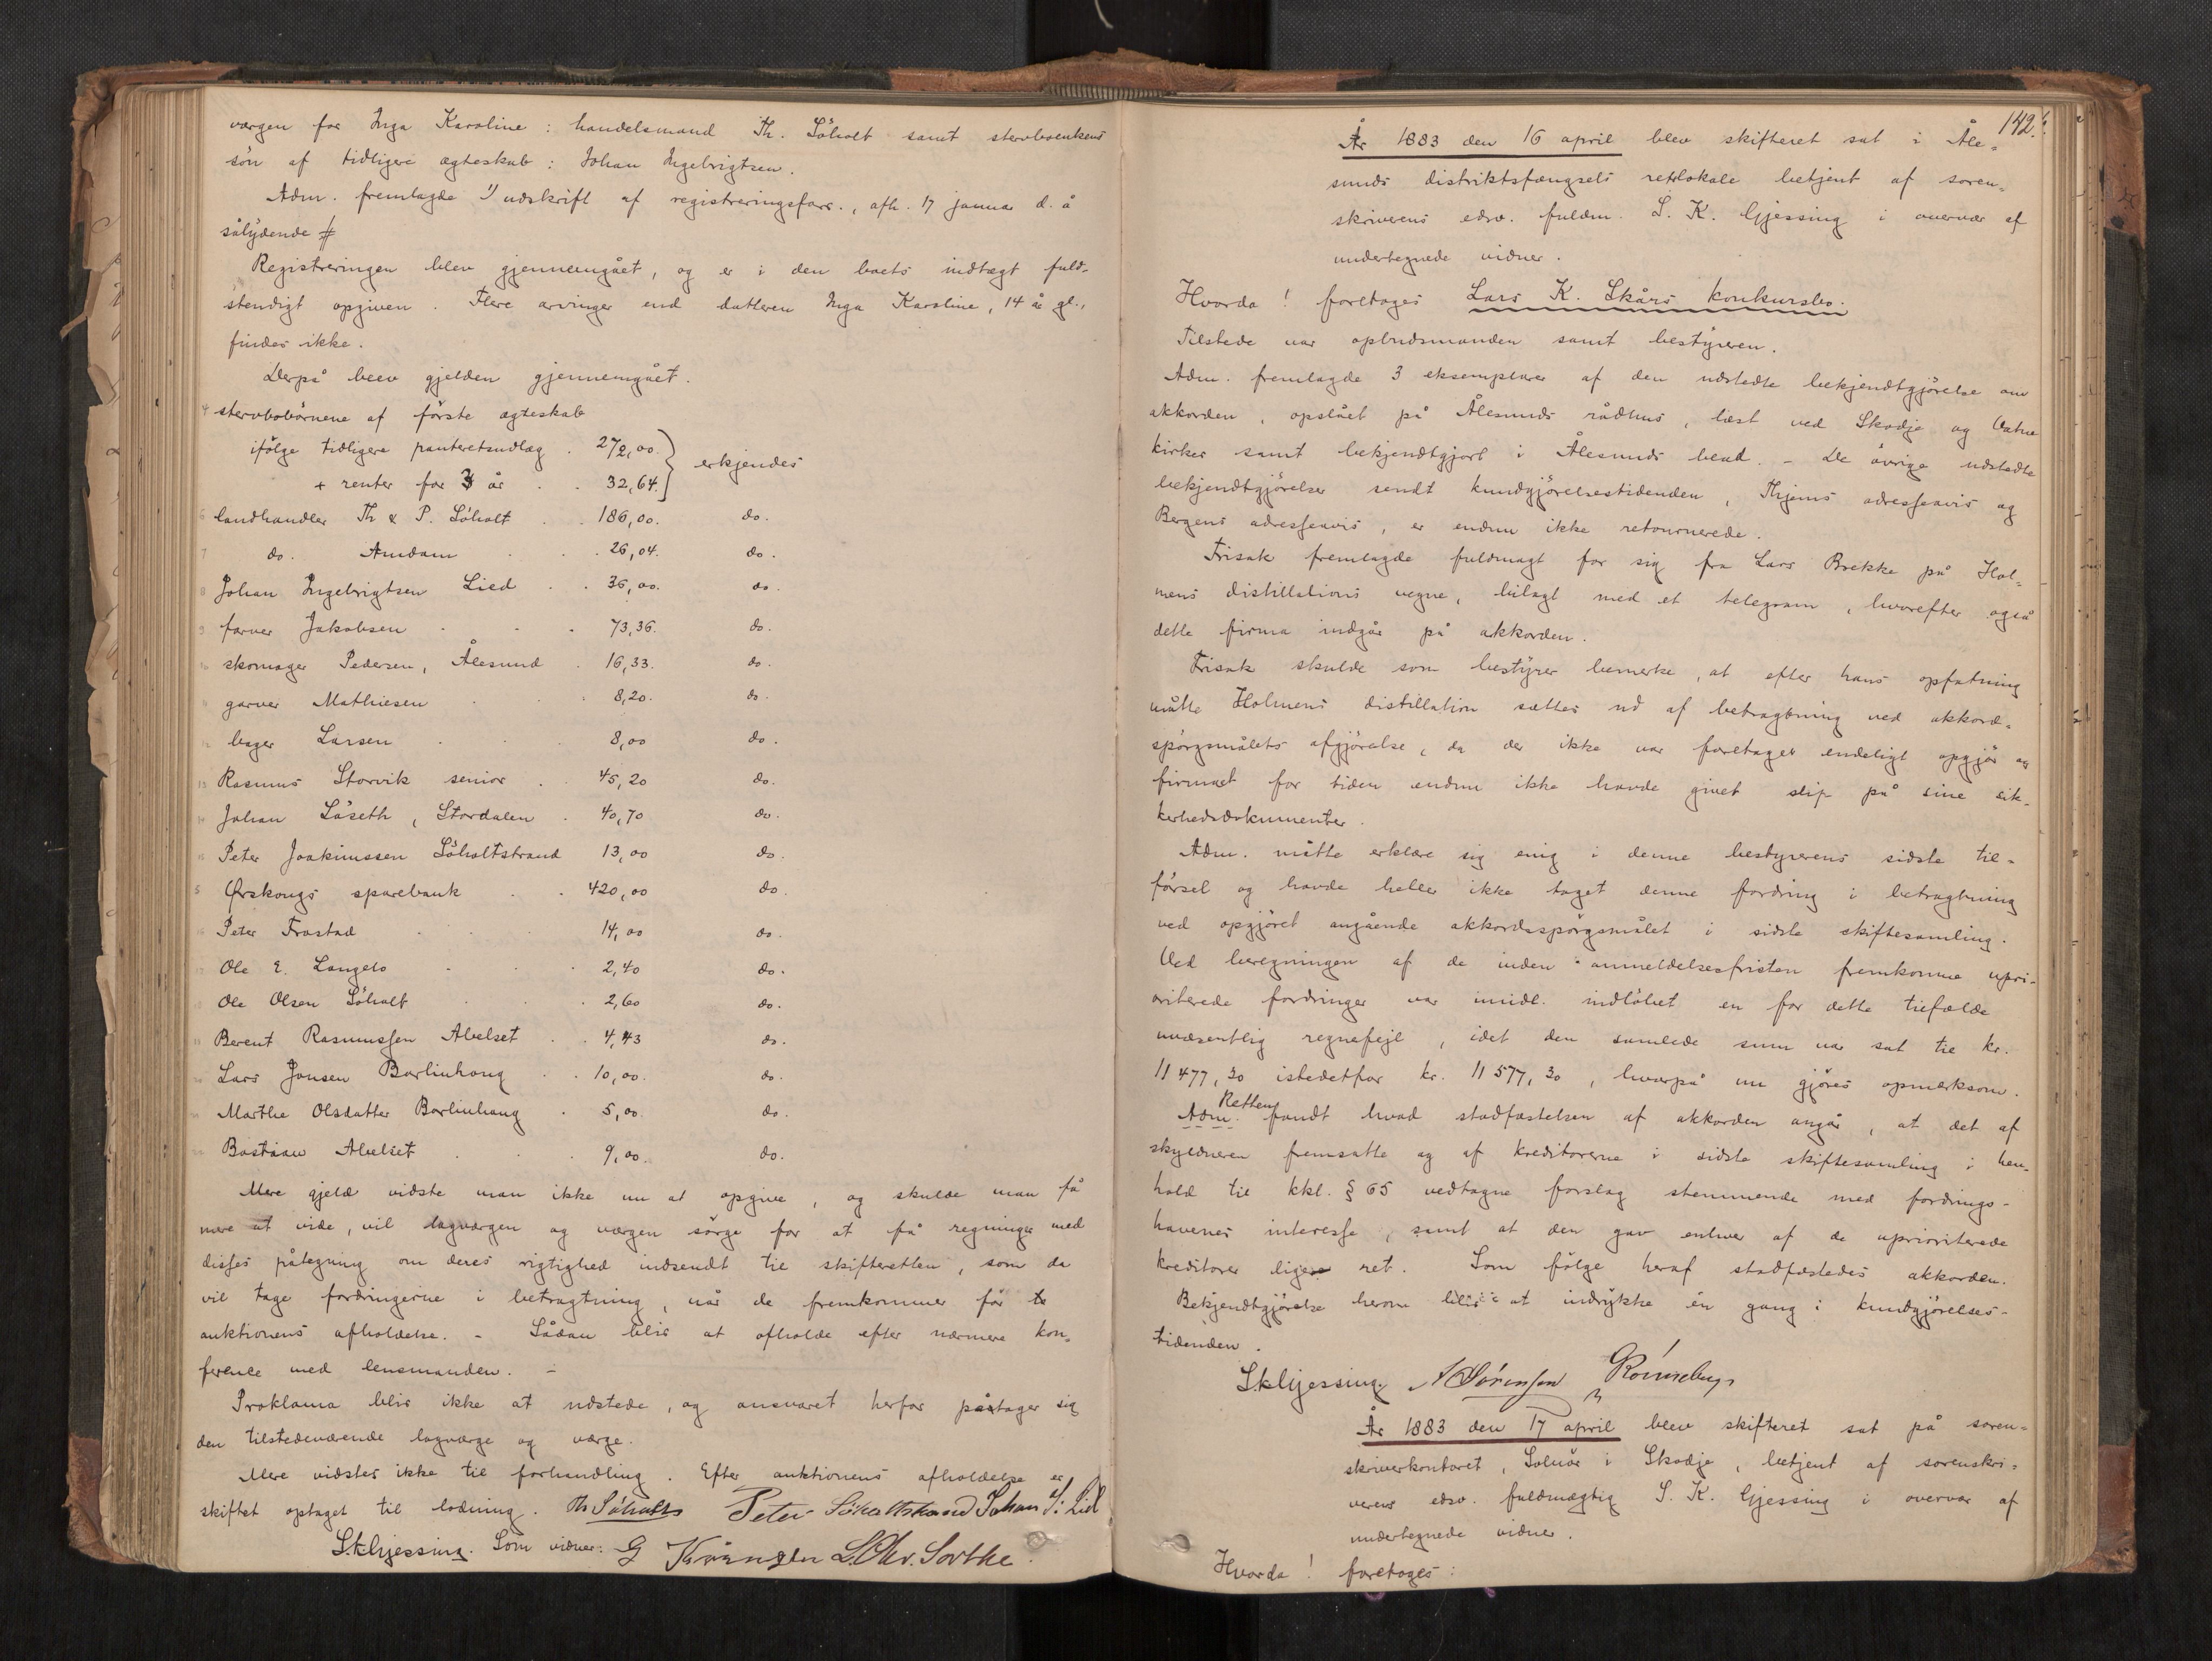 værgen for Inga Karoline: handelsmand Th. Söholt samt stervboenkens
sön af tidligere ægteskab: Johan Ingebrigtsen.
Adm. fremlagde 1) udskrift af registreringsforr., afh. 17 januar d. å
sålÿdende #
Registreringen blev gjennemgået, og er i den boets indtægt fuld-
stendigt opgiven. Flere arvinger end datteren Inga Karoline, 14 år gl.,
findes ikke.
Derpå blev gjelden gjennemgået.
4 stervbobörnene af förste ægteskab
ifölge tidligere panteretsudlæg . 272,00. } erkjendes
+ renter for 3 år . . 32,64.
6 landhandler Th & P. Söholt . . 186,00. do.
7 do. Amdam . . . 26,04. do.
8 Johan Ingebrigtsen Lied . . 36,00. do.
9 farver Jakobsen . . . 73,36. do.
10 skomager Pedersen, Ålesund . 16,33. do.
11 garver Mathiesen . . 8,20. do.
12 bager Larsen . . 8,00 do.
13 Rasmus Storvik senior . 45,20 do.
14 Johan Låseth, Stordalen . 40,70 do.
15 Peter Joakimssen Söholtstrand 13,00 do.
5 Ørskougs sparebank . . 420,00 do.
16 Peter Frostad . . . 14,00 do.
17 Ole E. Langelo . . . 2,40 do.
18 Ole Olsen Söholt . . . 2,60 do.
19 Berent Rasmussen Abelset . . 4,43 do.
20 Lars Jonsen Barlinhoug . . 10,00. do.
21 Marthe Olsdatter Barlinhaug . 5,00. do.
22 Bastian Abelset . . . 9,00. do.
Mere gjeld vidste man ikke nu at opgive, og skulde man få
mere at vide, vil lagværgen og værgen sörge for at få regninger med
disses påtegning om deres rigtighed indsendt til skifteretten, som da
vil tage fordringerne i betragtning, når de fremkommer för
auktionens afholdelse. – Sådan blir at afholde efter nærmere kon-
ference med lensmanden. –
Proklama blir ikke at udstede, og ansvaret herfor påtager sig
den tilstedeværende lagværge og værge.
Mere vidstes ikke til forhandling. Efter auktionens afholdelse er
skiftet optaget til lodning. Th Söholt Peter Söholtstrand Johan I: Lid
S.K.Gjessing. Som vidner: G Kvangen L. Chr. Sorthe.
142.
År 1883 den 16 april blev skifteret sat i Åle-
sunds distriktsfængsels retslokale betjent af soren-
skriverens edsv. fuldm. S. K. Gjessing i overvær af
undertegnede vidner.
Hvorda! foretoges Lars K. Skårs konkursbo.
Tilstede var opbudsmanden samt bestÿreren.
Adm. fremlagde 3 eksemplarer af den udstedte bekjendtgjörelse om
akkorden, opslået på Ålesunds rådhus, læst ved Skodje og Vatne
kirker samt bekjendtgjort i Ålesunds blad. – De övrige udstedte
bekjendtgjörelser sendt kundgjörelsestidenden, Thjems adresseavis og
Bergens adresseavis, er endnu ikke retournerede.
Frisak fremlagde fuldmagt for sig fra Lars Brekke på Hol-
mens distillations vegne, bilagt med et telegram, hvorefter også
dette firma indgår på akkorden.
Frisak skulde som bestÿrer bemerke, at efter hans opfatning
måtte Holmens distillation sættes ud af betragtning ved akkord-
spörgsmålets afgjörelse, da der ikke var foretaget endeligt opgjör og
firmaet for tiden endnu ikke havde givet slip på sine sik-
kerhedsdokumenter.
Adm. måtte erklære sig enig i denne bestyrerens sidste til-
försel og havde heller ikke taget denne fordring i betragtning
ved opgjöret angående akkordsspörgsmålet i sidste skiftesamling.
Ved beregningen af de inden anmeldelsesfristen fremkomne upri-
oriterede fordringer var imidl. indlöbet en for dette tilfælde
uvæsentlig regnefejl, idet den samlede sum var sat til kr.
11477,30 istedetfor kr. 11577,30, hvorpå nu gjöres opmerksom.
Retten
Adm. fandt hvad stadfæstelsen af akkorden angår, at det af
skyldneren fremsatte og af kreditorerne i sidste skiftesamling i hen-
hold til kkl. § 65 vedtagne forslag stemmende med fordrings-
havernes interesse, samt at den gav enhver af de uprioriterede
kreditorer lige ret. Som fölge heraf stadfæstedes akkorden.
Bekjendtgjörelse herom blir at indrÿkke én gang i kundgjörelses-
tidenden.
S.K.Gjessing. A Sørensen Rönneberg
År 1883 den 17 april blev skifteret sat på soren-
skriverkontoret, Solnör i Skodje, betjent af sorenskri-
verens edsv. fuldmægtig S. K. Gjessing i overvær af
undertegnede vidner.
Hvorda! foretoges: